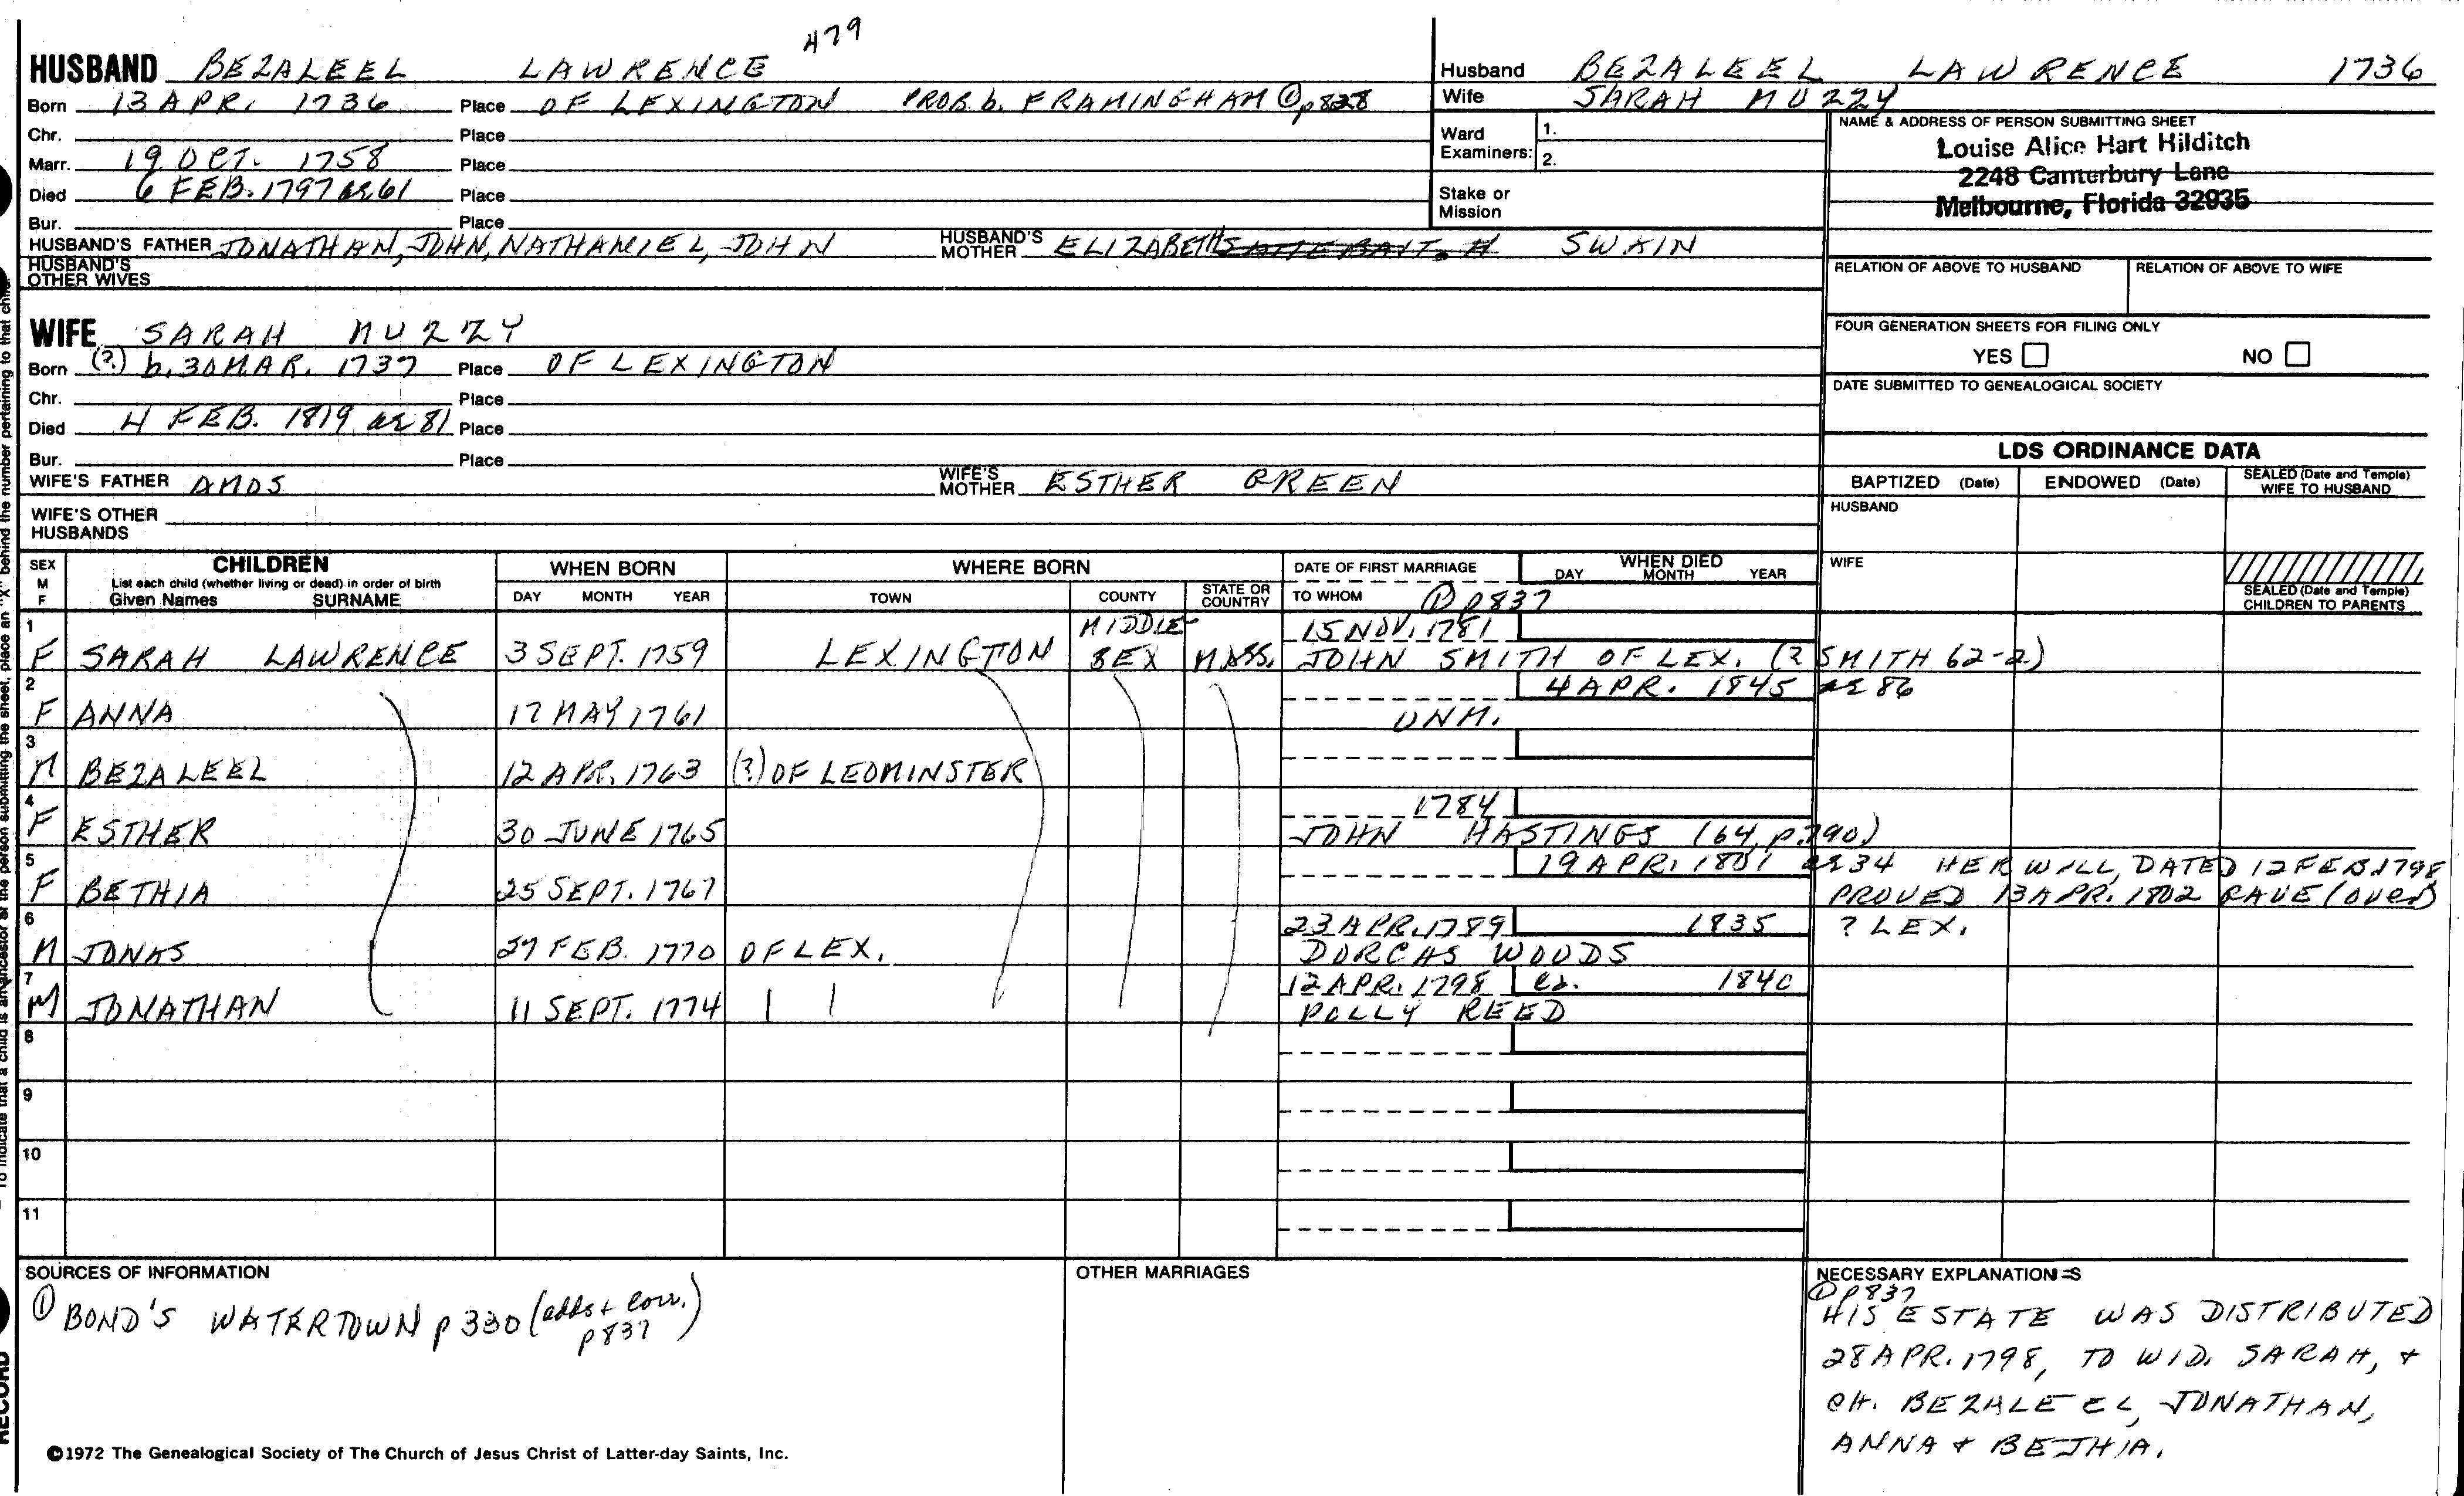 479
HUSBAND BEZALEEL LAWRENCE
Born 13 APR. 1736 Place OF LEXINGTON PROB. b. FRAMINGHAM ① p828
Chr. Place
Marr. 19 OCT. 1758 Place
Died 6 FEB. 1797 ae 61 Place
Bur. Place
HUSBAND'S FATHER JONATHAN, JOHN, NATHANIEL, JOHN HUSBAND'S MOTHER ELIZABETH SWAIN
HUSBAND'S OTHER WIVES
WIFE SARAH MUZZY
Born (?) b. 30 MAR. 1737 Place OF LEXINGTON
Chr. Place
Died 4 FEB. 1819 ae 81 Place
Bur. Place
WIFE'S FATHER AMOS WIFE'S MOTHER ESTHER GREEN
WIFE'S OTHER HUSBANDS
Husband BEZALEEL LAWRENCE 1736
Wife SARAH MUZZY
Ward Examiners: 1.
2.
Stake or Mission
NAME & ADDRESS OF PERSON SUBMITTING SHEET
Louise Alice Hart Hilditch
2248 Canterbury Lane
Melbourne, Florida 32935
RELATION OF ABOVE TO HUSBAND RELATION OF ABOVE TO WIFE
FOUR GENERATION SHEETS FOR FILING ONLY
YES NO
DATE SUBMITTED TO GENEALOGICAL SOCIETY
LDS ORDINANCE DATA
BAPTIZED (Date) ENDOWED (Date) SEALED (Date and Temple) WIFE TO HUSBAND
HUSBAND
WIFE
SEALED (Date and Temple) CHILDREN TO PARENTS
SEX M F CHILDREN WHEN BORN WHERE BORN DATE OF FIRST MARRIAGE WHEN DIED
List each child (whether living or dead) in order of birth
Given Names SURNAME DAY MONTH YEAR TOWN COUNTY STATE OR COUNTRY TO WHOM DAY MONTH YEAR
① p837
1 MIDDLE- 15 NOV. 1781
F SARAH LAWRENCE 3 SEPT. 1759 LEXINGTON SEX MASS. JOHN SMITH OF LEX. (? SMITH 62-2)
2 4 APR. 1845 ae 86
F ANNA 17 MAY 1761 UNM.
3
M BEZALEEL 12 APR. 1763 (?) OF LEOMINSTER
4 1784
F ESTHER 30 JUNE 1765 JOHN HASTINGS (64, p.790)
5 19 APR. 1801 ae 34 HER WILL, DATED 12 FEB. 1798
F BETHIA 25 SEPT. 1767 PROVED 13 APR. 1802 GAVE (over)
6 23 APR. 1789 1835 ? LEX.
M JONAS 27 FEB. 1770 OF LEX. DORCAS WOODS
7 12 APR. 1798 ca. 1840
M JONATHAN 11 SEPT. 1774 | | POLLY REED
8
9
10
11
SOURCES OF INFORMATION
① BOND'S WATERTOWN p 330 (adds + corr. p837)
OTHER MARRIAGES
NECESSARY EXPLANATIONS
① p837
HIS ESTATE WAS DISTRIBUTED
28 APR. 1798, TO WID. SARAH, +
CH. BEZALEEL, JONATHAN,
ANNA + BETHIA.
©1972 The Genealogical Society of The Church of Jesus Christ of Latter-day Saints, Inc.
RECORD
To indicate that a child is an ancestor of the person submitting the sheet, place an "X" behind the number pertaining to that child.